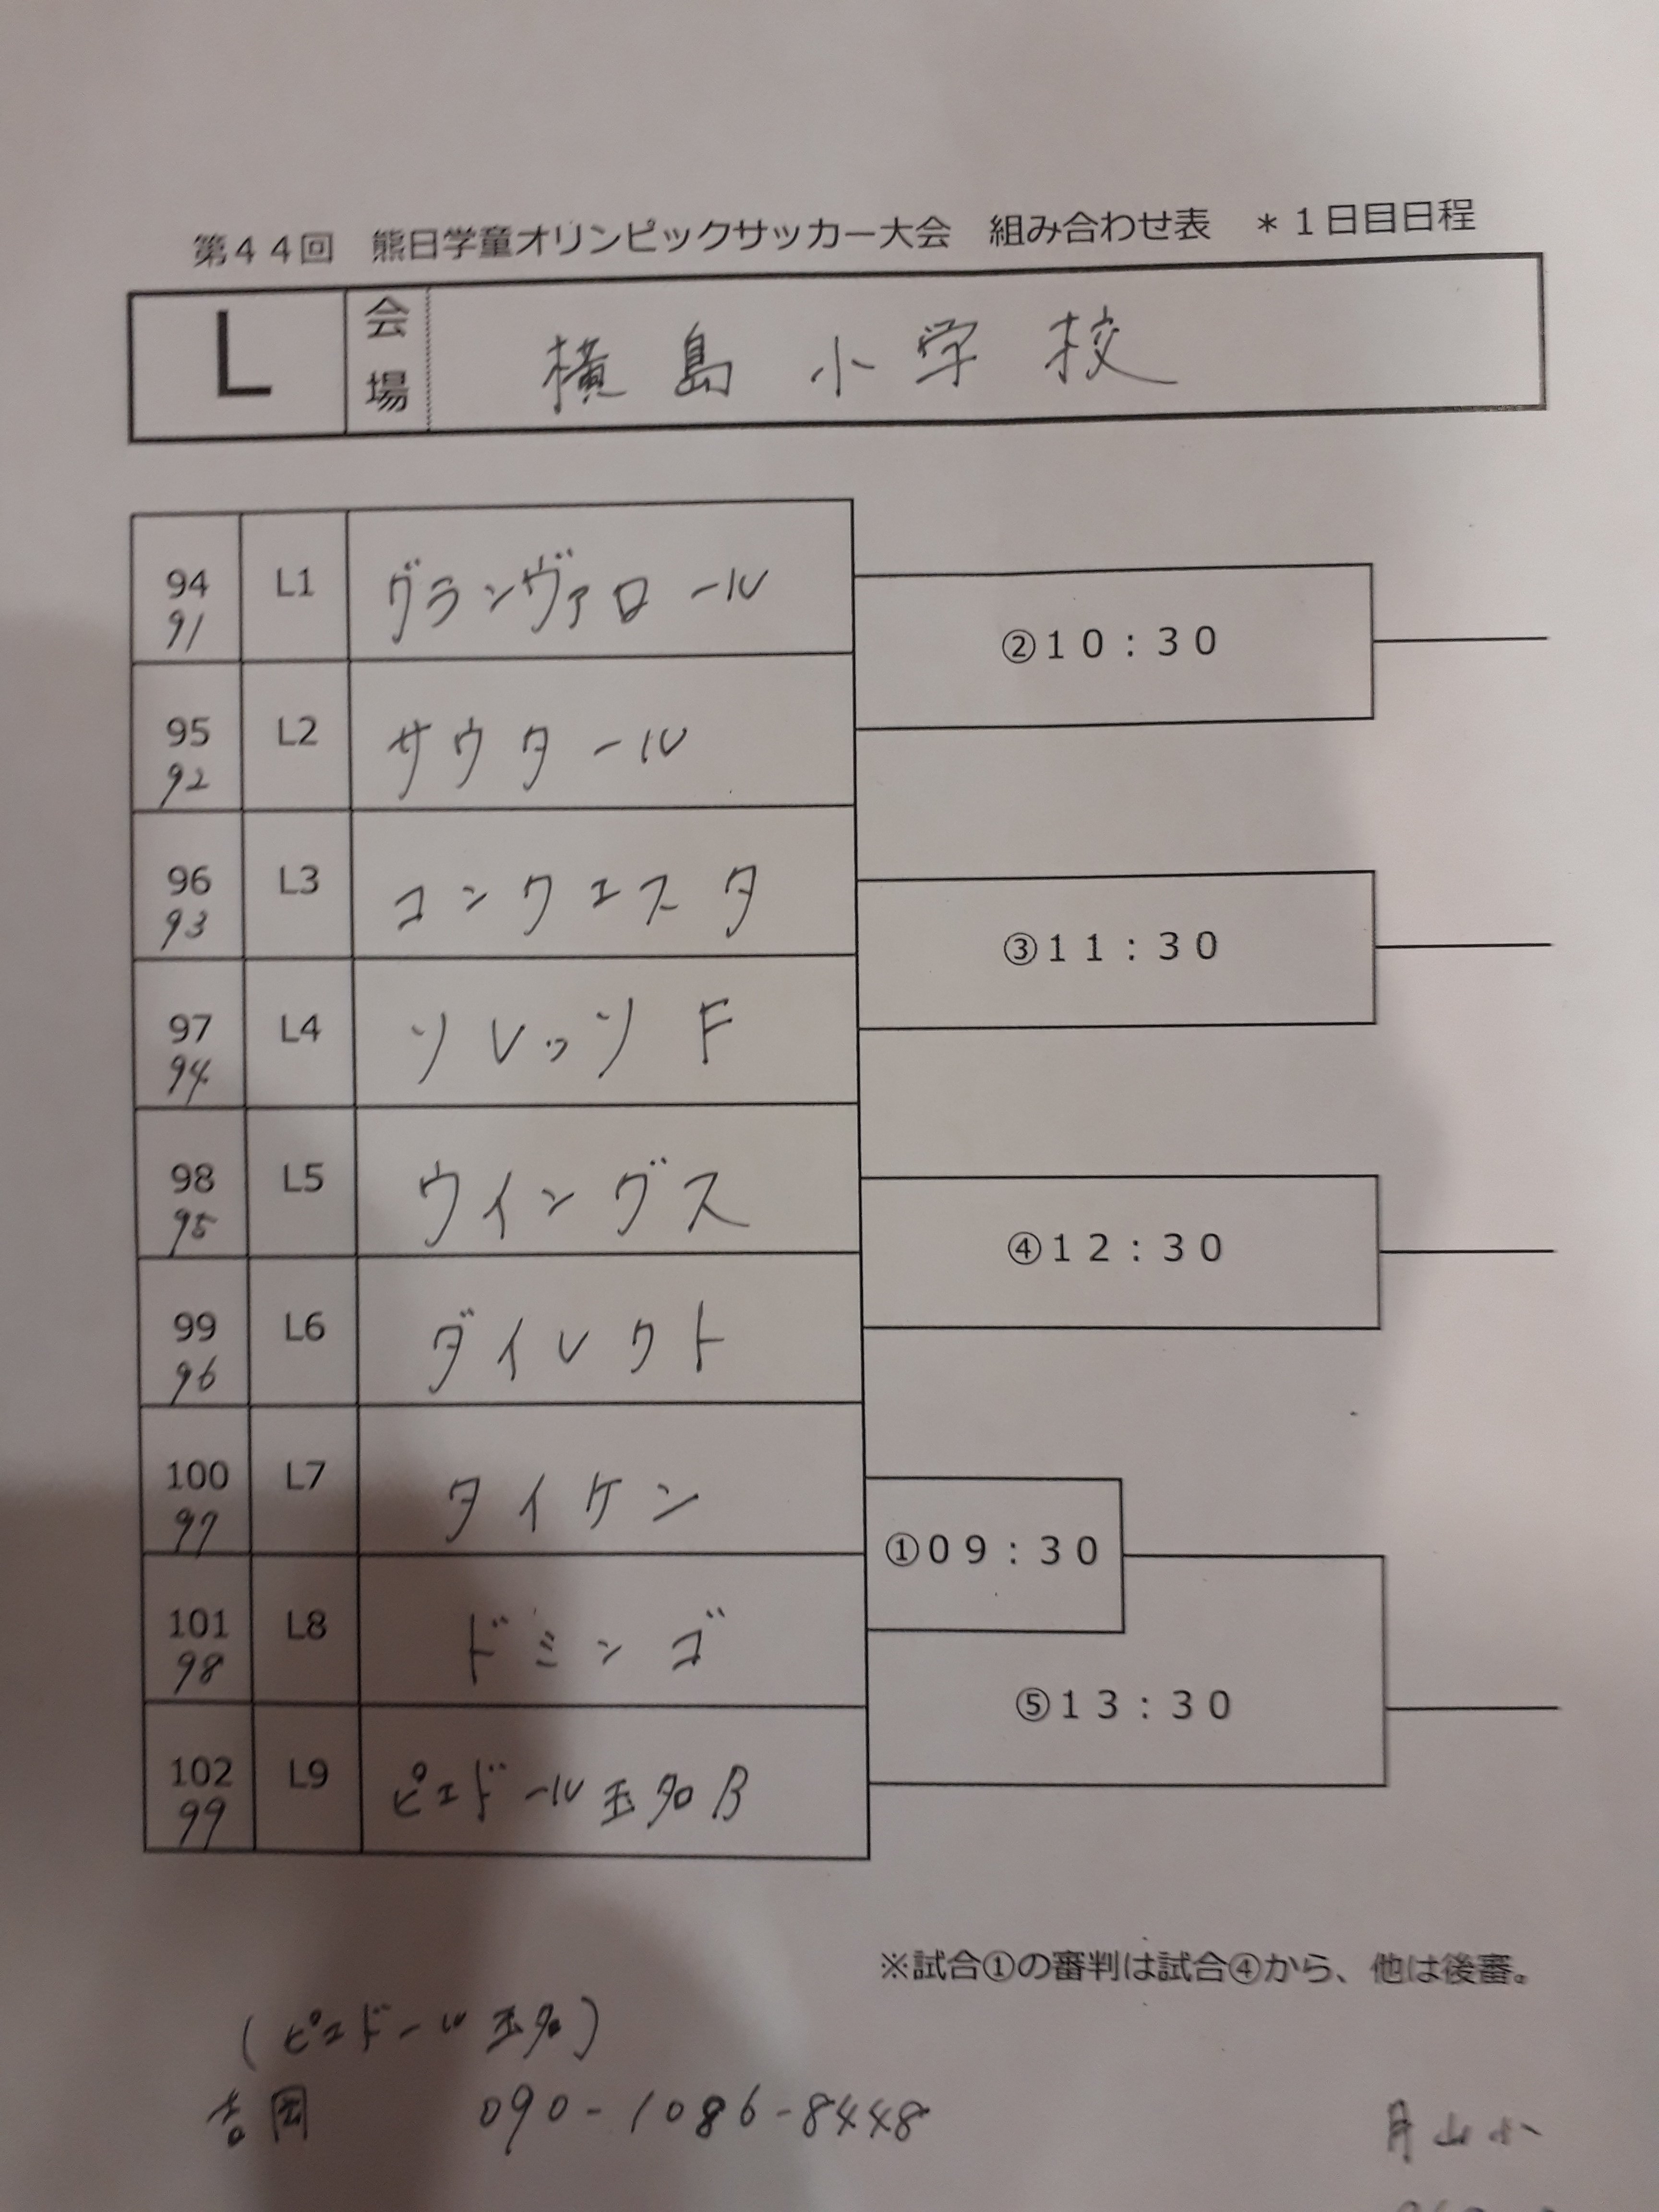 第44回 熊日学童オリンピックサッカー大会 組み合わせ表 *1日目日程
L 会場 横島小学校
94 L1 グランヴァロール
91
②10:30
95 L2 サウタール
92
96 L3 コンクエスタ
93
③11:30
97 L4 ソレッソF
94
98 L5 ウイングス
95
④12:30
99 L6 ダイレクト
96
100 L7 タイケン
97
①09:30
101 L8 ドミンゴ
98
⑤13:30
102 L9 ピエドール玉名B
99
※試合①の審判は試合④から、他は後審。
(ピエドール玉名)
吉岡 090-1086-8448
月山小